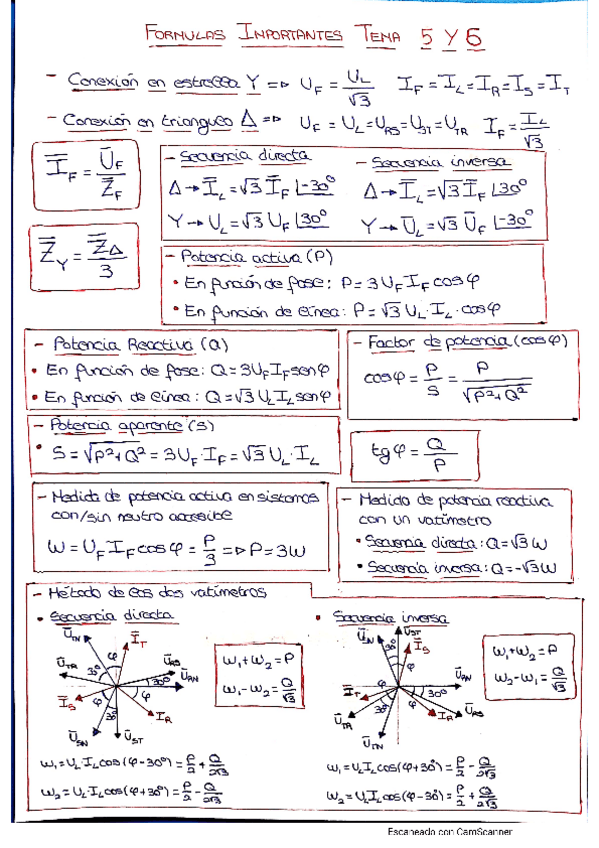 FORMULAS INPORTANTES TEMA 5 Y 6
- Conexión en estrella Y => U_F = U_L/√3   I_F = I_L = I_R = I_S = I_T
- Conexión en triangulo Δ => U_F = U_L = U_RS = U_ST = U_TR   I_F = I_L/√3
Ī_F = Ū_F/Z̄_F
Z̄_Y = Z̄_Δ/3
- Secuencia directa
Δ → Ī_L = √3 Ī_F ∟-30°
Y → U_L = √3 U_F ∟30°
- Secuencia inversa
Δ → Ī_L = √3 Ī_F ∟30°
Y → Ū_L = √3 Ū_F ∟-30°
- Potencia activa (P)
• En función de fase: P = 3 U_F I_F cos φ
• En función de línea: P = √3 U_L · I_L · cos φ
- Potencia Reactiva (Q)
• En función de fase: Q = 3 U_F I_F sen φ
• En función de línea: Q = √3 U_L I_L sen φ
- Factor de potencia (cos φ)
cos φ = P/S = P/√(P²+Q²)
- Potencia aparente (S)
• S = √(P²+Q²) = 3 U_F · I_F = √3 U_L · I_L
tg φ = Q/P
- Medida de potencia activa en sistemas
con/sin neutro accesible
W = U_F I_F cos φ = P/3 => P = 3W
- Medida de potencia reactiva
con un vatímetro
• Secuencia directa: Q = √3 W
• Secuencia inversa: Q = -√3 W
- Método de los dos vatímetros
• Secuencia directa
Ū_TN
Ī_T
Ū_TR
30°
φ
Ū_RS
Ū_RN
30°
φ
Ī_S
φ
30°
Ī_R
Ū_SN
Ū_ST
W₁ + W₂ = P
W₁ - W₂ = Q/√3
W₁ = U_L · I_L cos (φ-30°) = P/2 + Q/2√3
W₂ = U_L I_L cos (φ+30°) = P/2 - Q/2√3
• Secuencia inversa
Ū_SN
Ū_ST
30°
Ī_S
φ
Ū_RN
Ī_T
φ
30°
30°
φ
Ī_R
Ū_RS
Ū_TR
Ū_TN
W₁ + W₂ = P
W₂ - W₁ = Q/√3
W₁ = U_L I_L cos (φ+30°) = P/2 - Q/2√3
W₂ = U_L I_L cos (φ-30°) = P/2 + Q/2√3
Escaneado con CamScanner